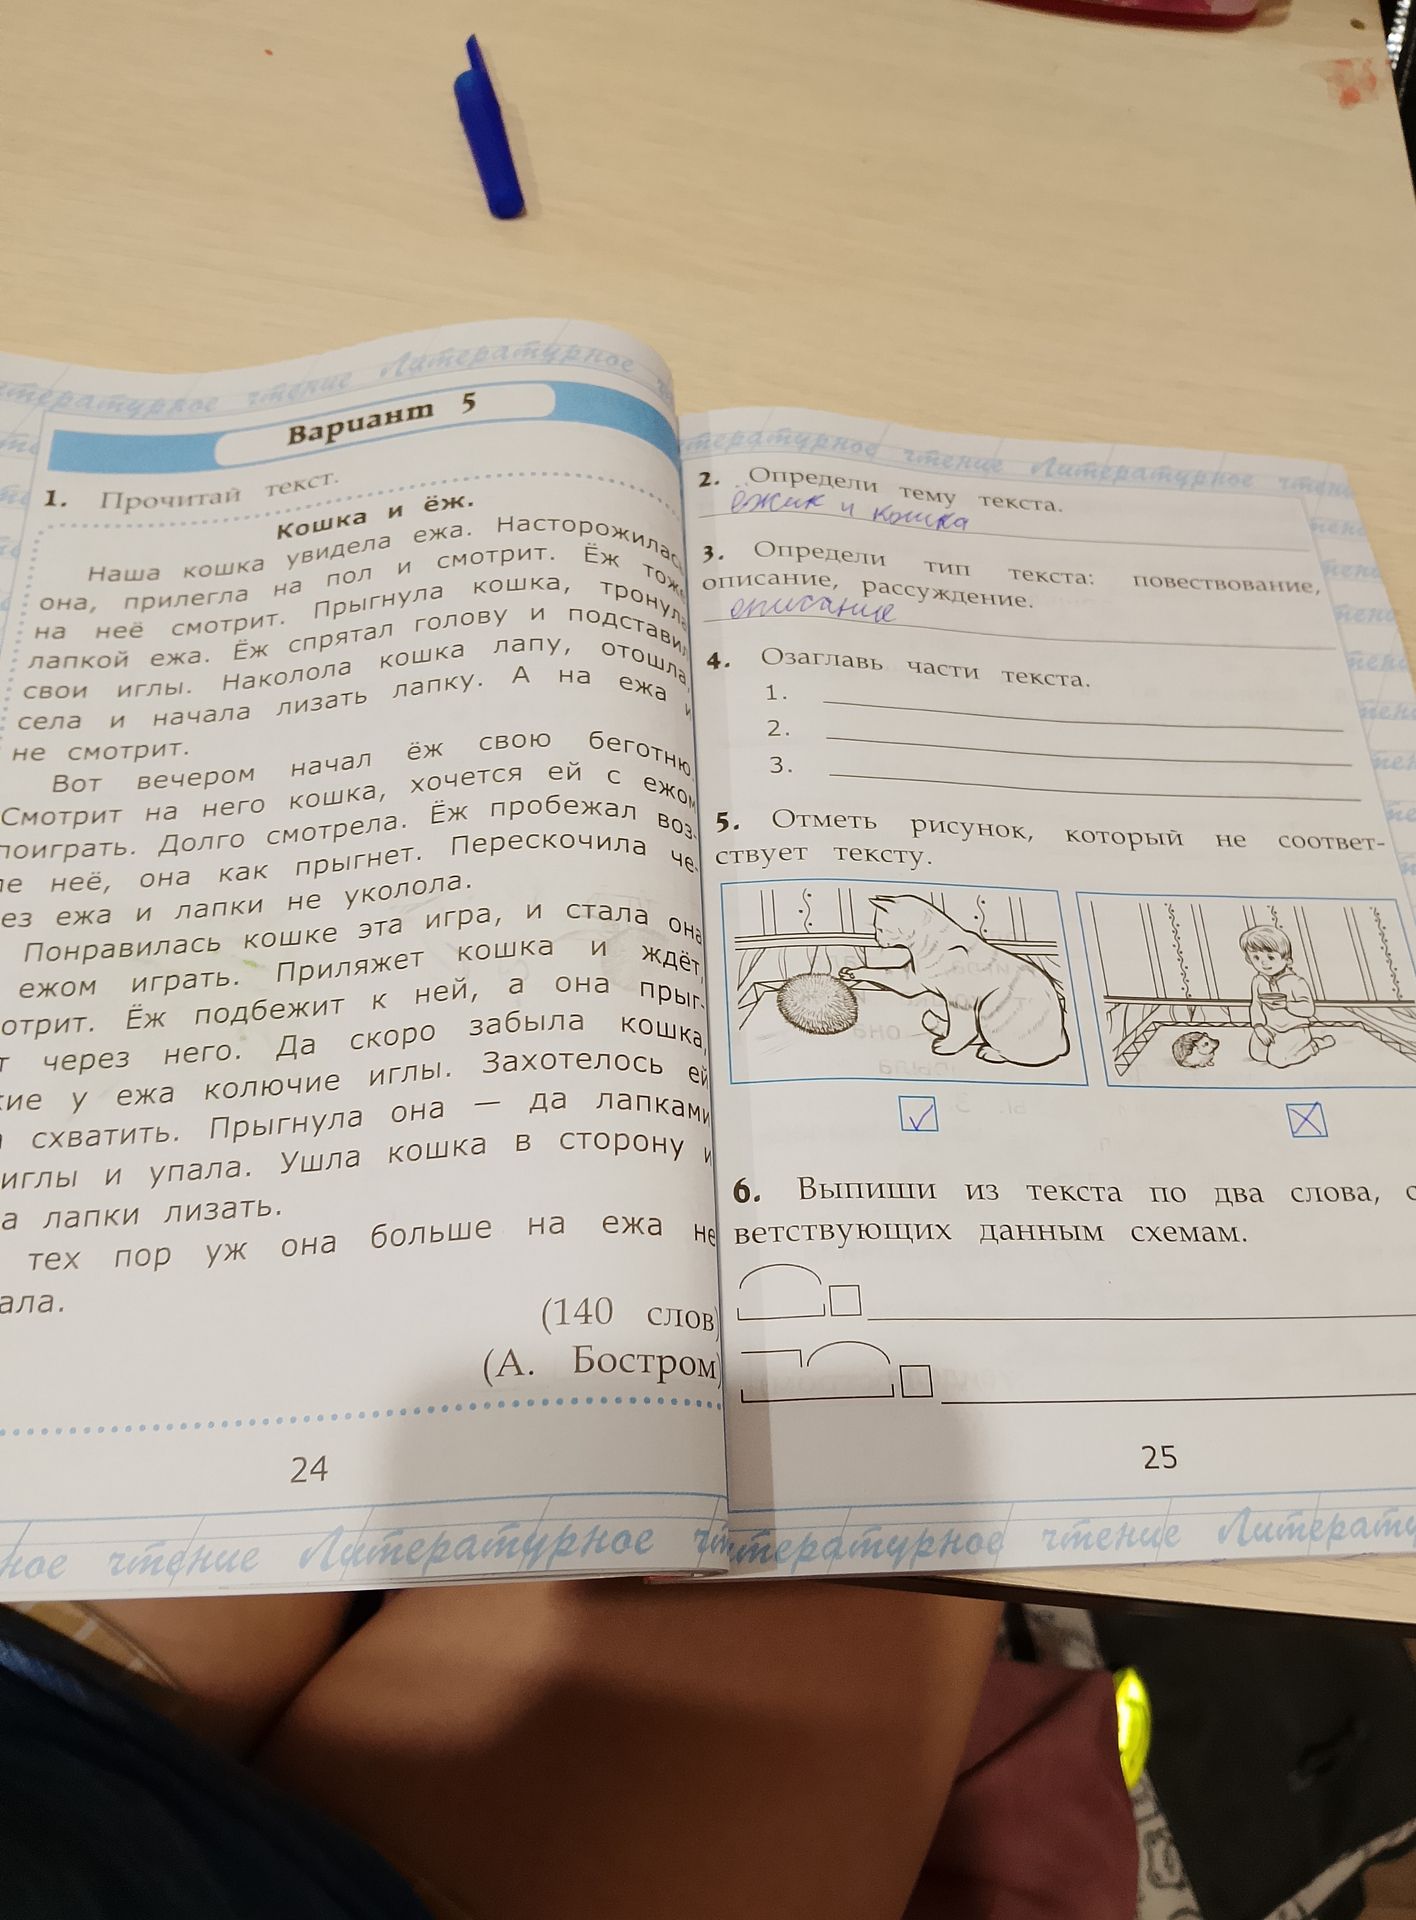 Литературное чтение Литературное
Вариант 5
1. Прочитай текст.
Кошка и ёж.
Наша кошка увидела ежа. Насторожилась
она, прилегла на пол и смотрит. Ёж тоже
на неё смотрит. Прыгнула кошка, тронула
лапкой ежа. Ёж спрятал голову и подставил
свои иглы. Наколола кошка лапу, отошла,
села и начала лизать лапку. А на ежа и
не смотрит.
Вот вечером начал ёж свою беготню.
Смотрит на него кошка, хочется ей с ежом
поиграть. Долго смотрела. Ёж пробежал воз-
ле неё, она как прыгнет. Перескочила че-
рез ежа и лапки не уколола.
Понравилась кошке эта игра, и стала она
ежом играть. Приляжет кошка и ждёт,
отрит. Ёж подбежит к ней, а она прыг-
т через него. Да скоро забыла кошка,
кие у ежа колючие иглы. Захотелось ей
схватить. Прыгнула она — да лапками
иглы и упала. Ушла кошка в сторону и
а лапки лизать.
тех пор уж она больше на ежа не
ала.
(140 слов)
(А. Бостром)
24
ное чтение Литературное чт
тературное чтение Литературное чтени
2. Определи тему текста.
ёжик и кошка
3. Определи тип текста: повествование,
описание, рассуждение.
описание
4. Озаглавь части текста.
1.
2.
3.
5. Отметь рисунок, который не соответ-
ствует тексту.
6. Выпиши из текста по два слова, с
ветствующих данным схемам.
25
тературное чтение Литерату